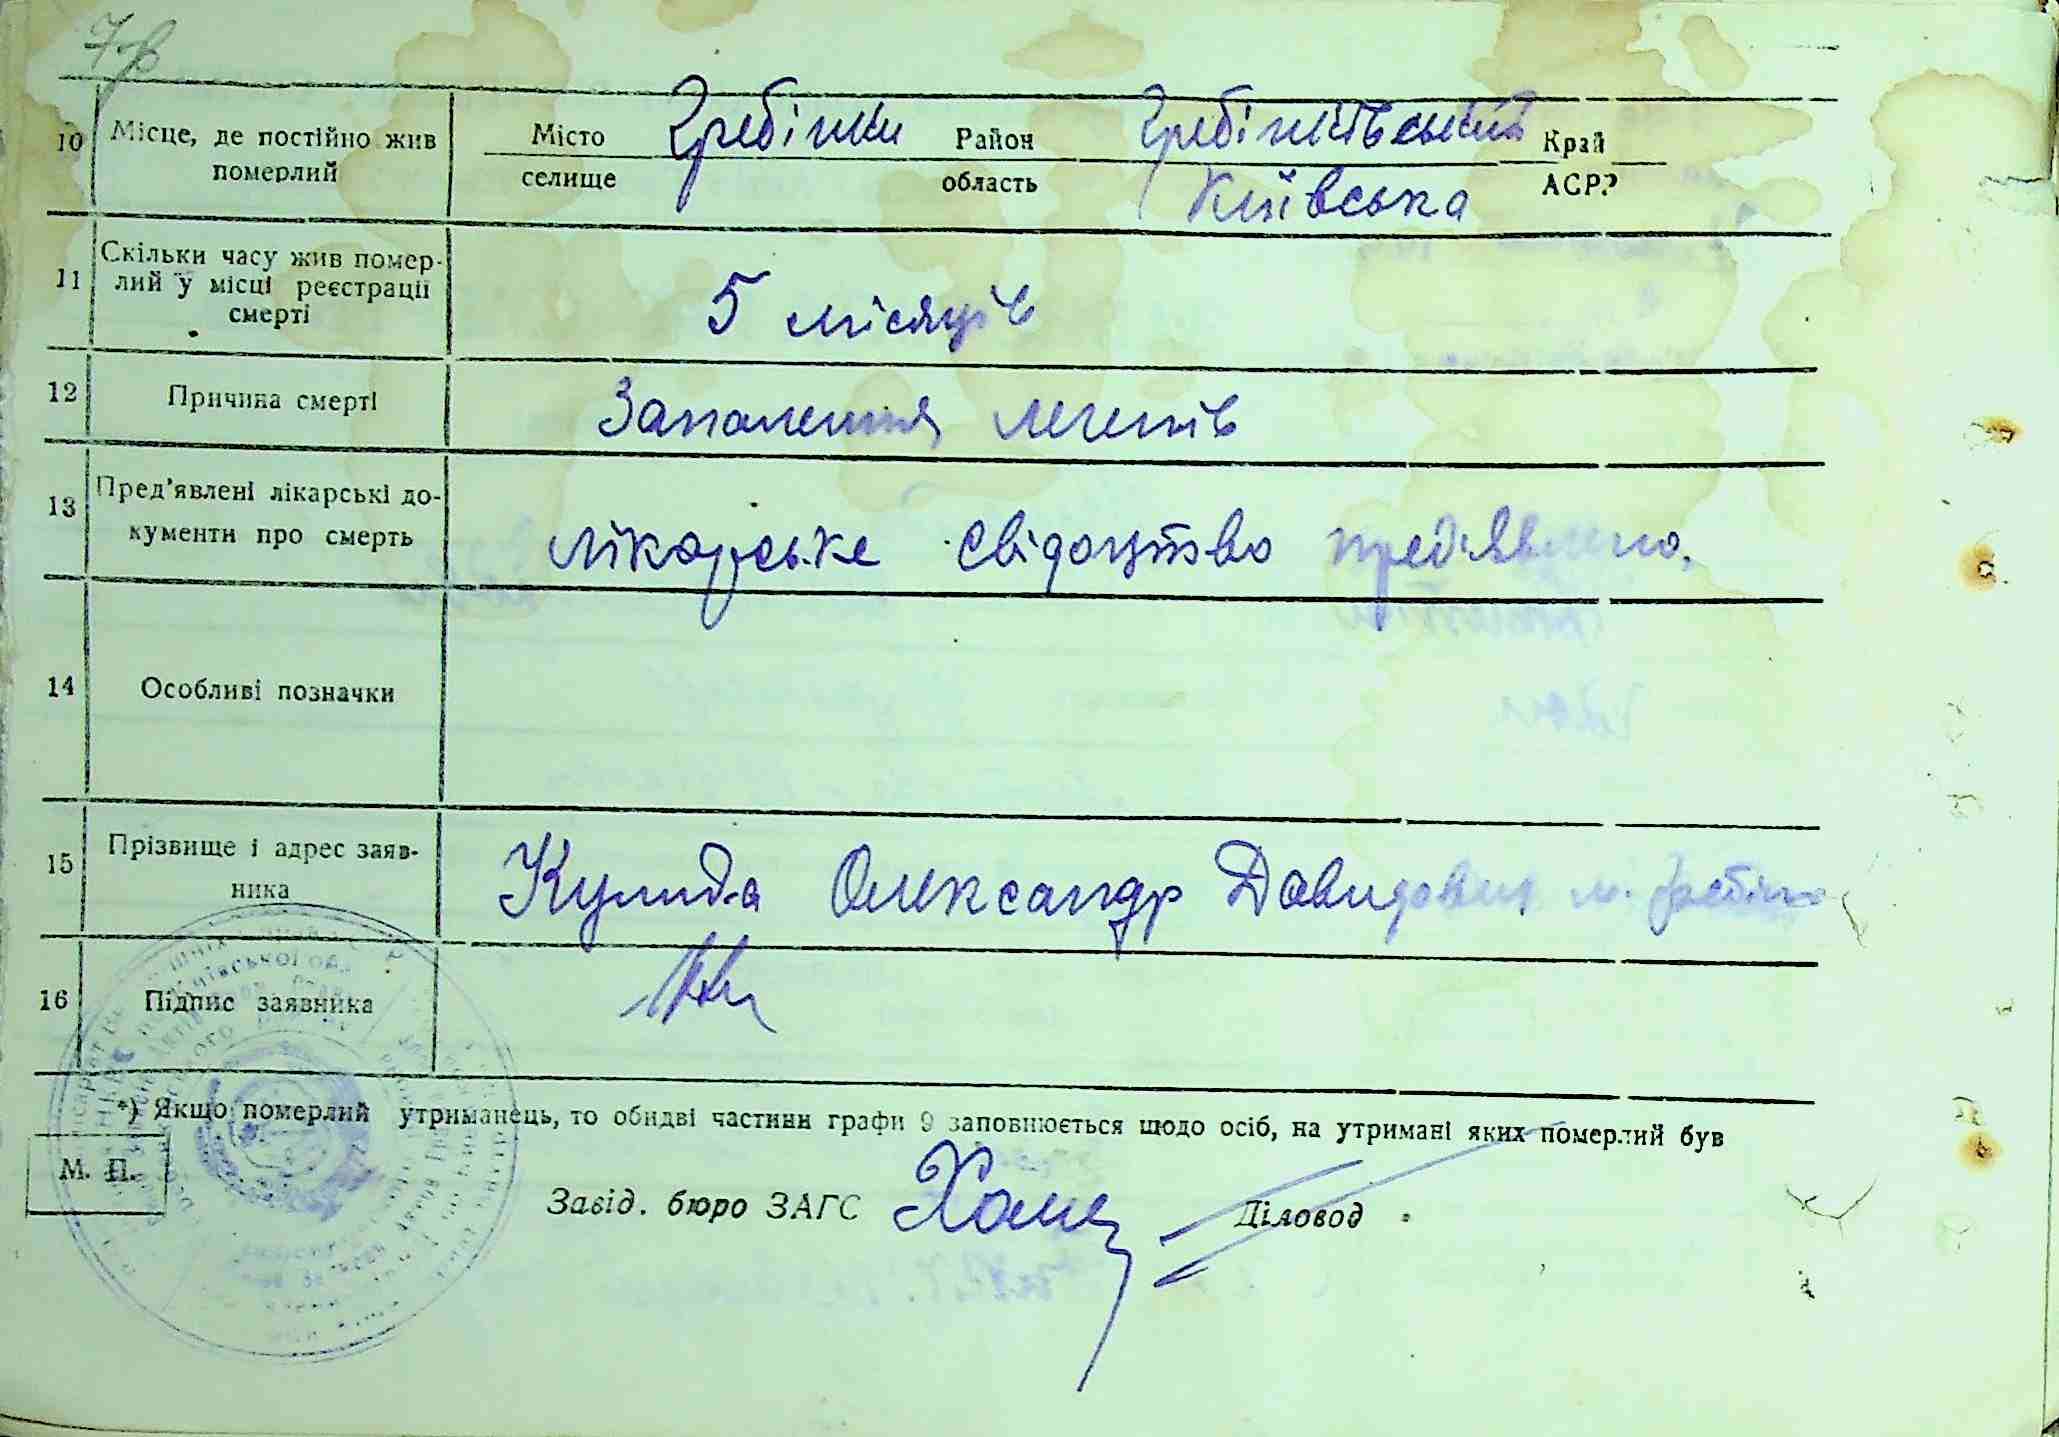 7
10 Місце, де постійно жив померлий
Місто Гребінки Район Гребінківський Край
селище область Київська АСР?
11 Скільки часу жив помер-
лий у місці реєстрації
смерті
5 місяців
12 Причина смерті Запалення легенів
13 Пред'явлені лікарські до-
кументи про смерть
лікарське свідоцтво пред'явлено.
14 Особливі позначки
15 Прізвище і адрес заяв-
ника
Олександр Давидович м.
16 Підпис заявника
*) Якщо померлий утриманець, то обидві частини графи 9 заповнюється щодо осіб, на утримані яких померлий був
М. П.
Завід. бюро ЗАГС Діловод